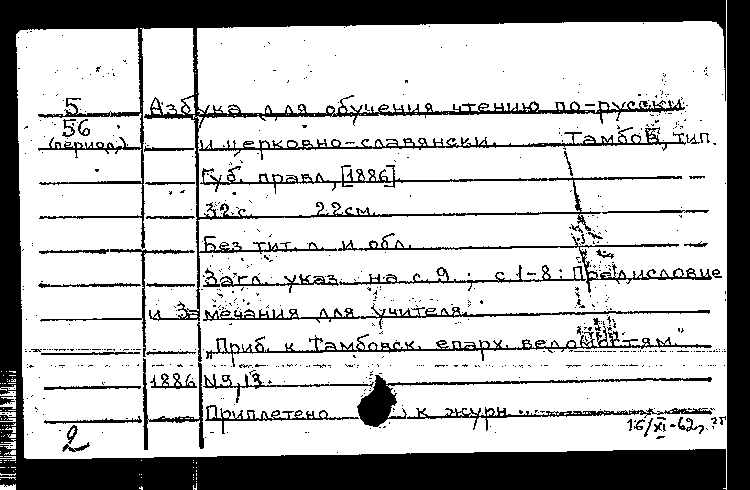 5 Азбука для обучения чтению по-русски
56 (период.) и церковно-славянски. Тамбов, тип.
Губ. правл., [1886].
32 с. 22 см.
Без тит. л. и обл.
Загл. указ. на с. 9.; с. 1-8: Предисловие
и Замечания для учителя.
"Приб. к Тамбовск. епарх. ведомостям."
1886 N 9, 13.
Приплетено к журн.
2 16/XI-62г.